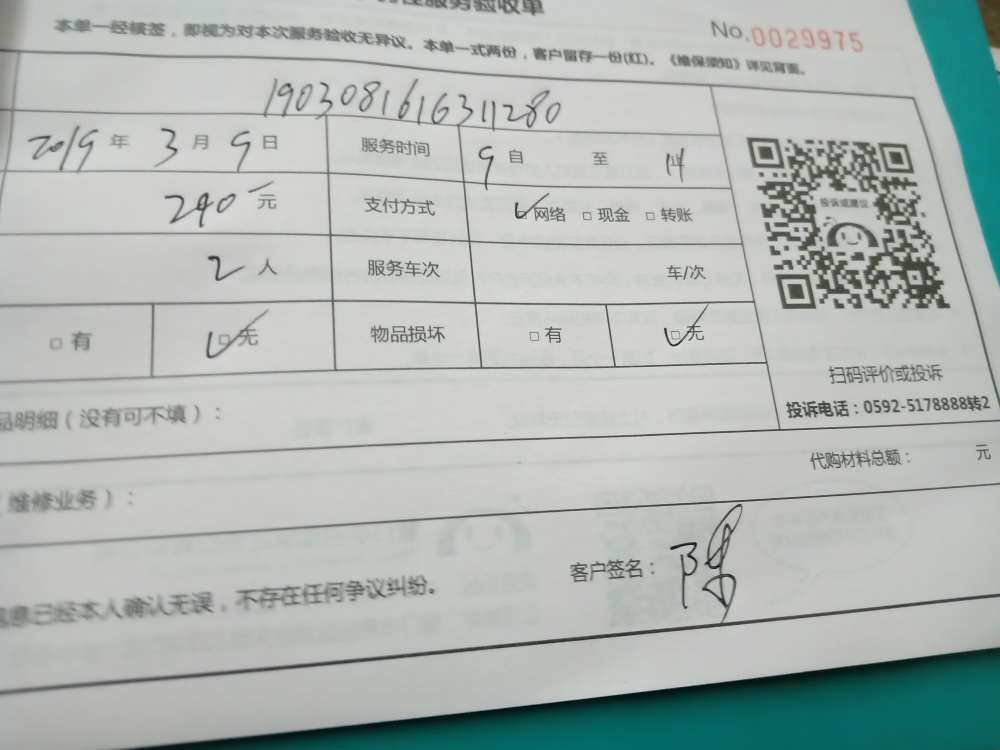 服务验收单
No.0029975
本单一经核签，即视为对本次服务验收无异议。本单一式两份，客户留存一份(红)。《维保须知》详见背面。
1903081616311280
2019年3月9日 服务时间 9自 至
290元 支付方式 ☑网络 □现金 □转账
2人 服务车次 车/次
□有 ☑无 物品损坏 □有 ☑无
投诉或建议
扫码评价或投诉
投诉电话：0592-5178888转2
品明细（没有可不填）：
代购材料总额： 元
（维修业务）：
信息已经本人确认无误，不存在任何争议纠纷。
客户签名：陈